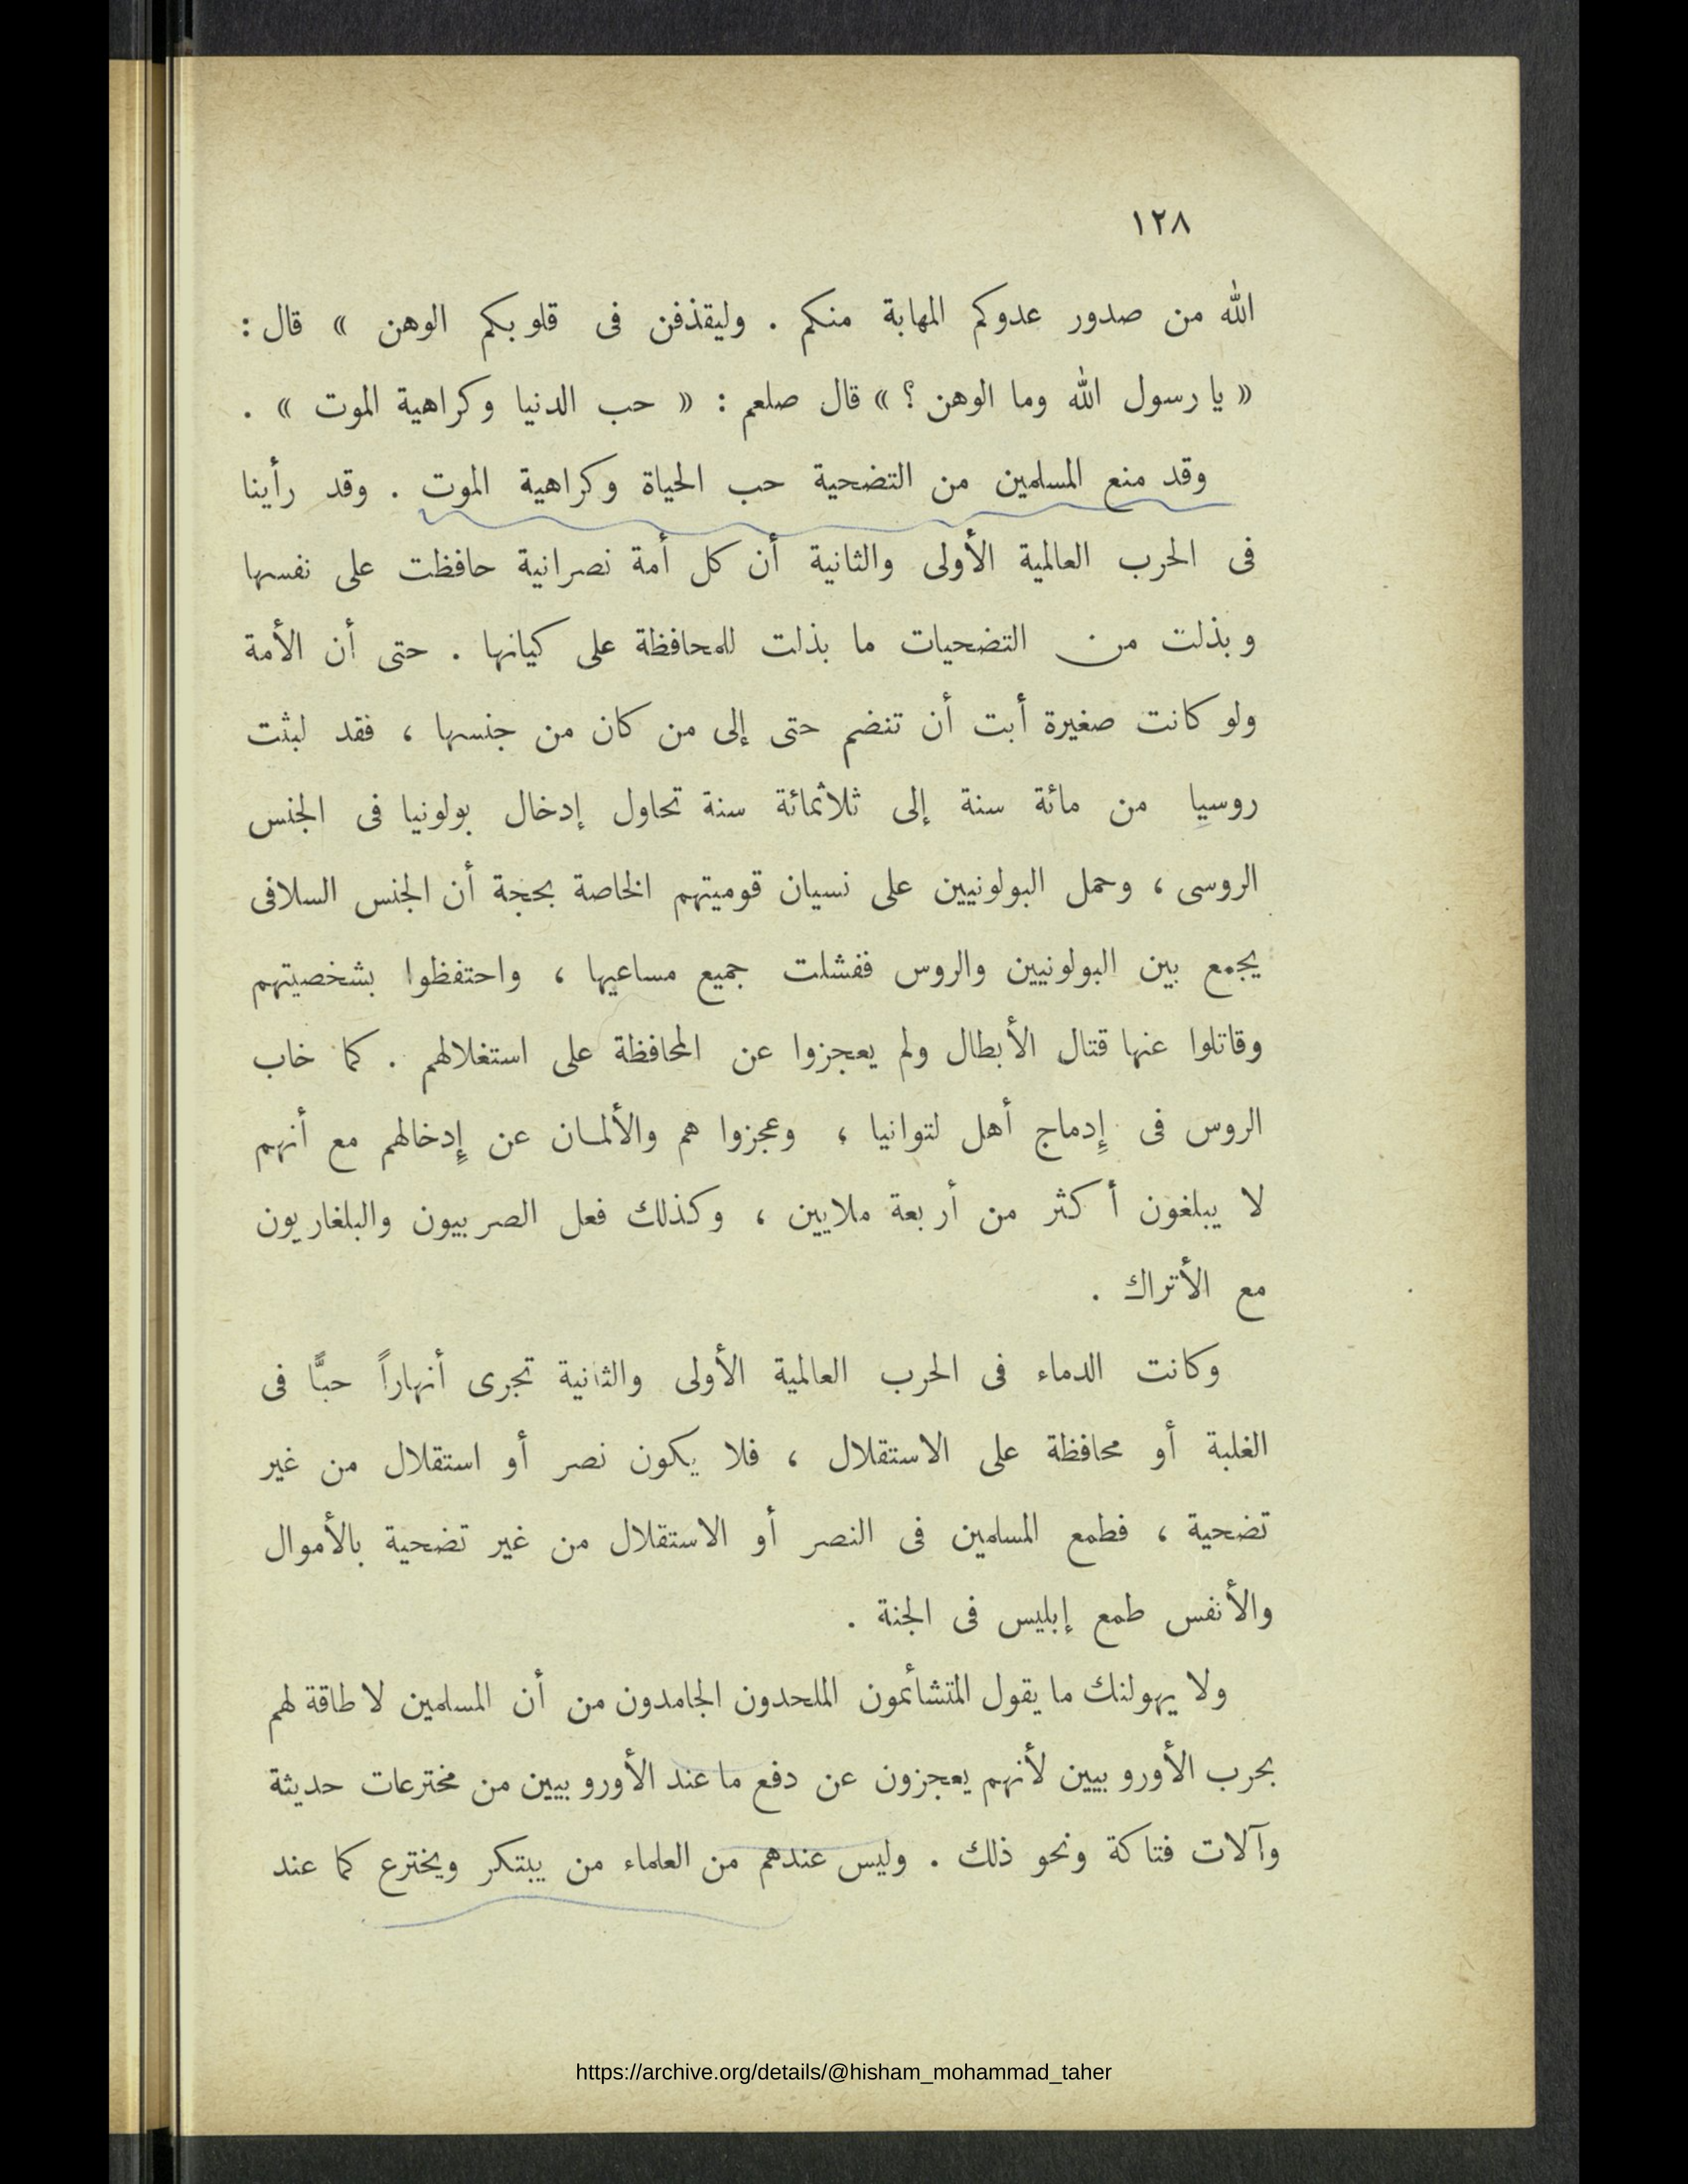 ١٢٨
الله من صدور عدوكم المهابة منكم . وليقذفن فى قلوبكم الوهن » قال :
« يا رسول الله وما الوهن ؟ » قال صلعم : « حب الدنيا وكراهية الموت » .
وقد منع المسلمين من التضحية حب الحياة وكراهية الموت . وقد رأينا
فى الحرب العالمية الأولى والثانية أن كل أمة نصرانية حافظت على نفسها
وبذلت من التضحيات ما بذلت للمحافظة على كيانها . حتى أن الأمة
ولو كانت صغيرة أبت أن تنضم حتى إلى من كان من جنسها ، فقد لبثت
روسيا من مائة سنة إلى ثلاثمائة سنة تحاول إدخال بولونيا فى الجنس
الروسى ، وحمل البولونيين على نسيان قوميتهم الخاصة بحجة أن الجنس السلافى
يجمع بين البولونيين والروس ففشلت جميع مساعيها ، واحتفظوا بشخصيتهم
وقاتلوا عنها قتال الأبطال ولم يعجزوا عن المحافظة على استغلالهم . كما خاب
الروس فى إدماج أهل لتوانيا ، وعجزوا هم والألمـان عن إدخالهم مع أنهم
لا يبلغون أكثر من أربعة ملايين ، وكذلك فعل الصربيون والبلغاريون
مع الأتراك .
وكانت الدماء فى الحرب العالمية الأولى والثانية تجرى أنهاراً حبًّا فى
الغلبة أو محافظة على الاستقلال ، فلا يكون نصر أو استقلال من غير
تضحية ، فطمع المسلمين فى النصر أو الاستقلال من غير تضحية بالأموال
والأنفس طمع إبليس فى الجنة .
ولا يهولنك ما يقول المتشائمون الملحدون الجامدون من أن المسلمين لا طاقة لهم
بحرب الأوروبيين لأنهم يعجزون عن دفع ما عند الأوروبيين من مخترعات حديثة
وآلات فتاكة ونحو ذلك . وليس عندهم من العلماء من يبتكر ويخترع كما عند
https://archive.org/details/@hisham_mohammad_taher